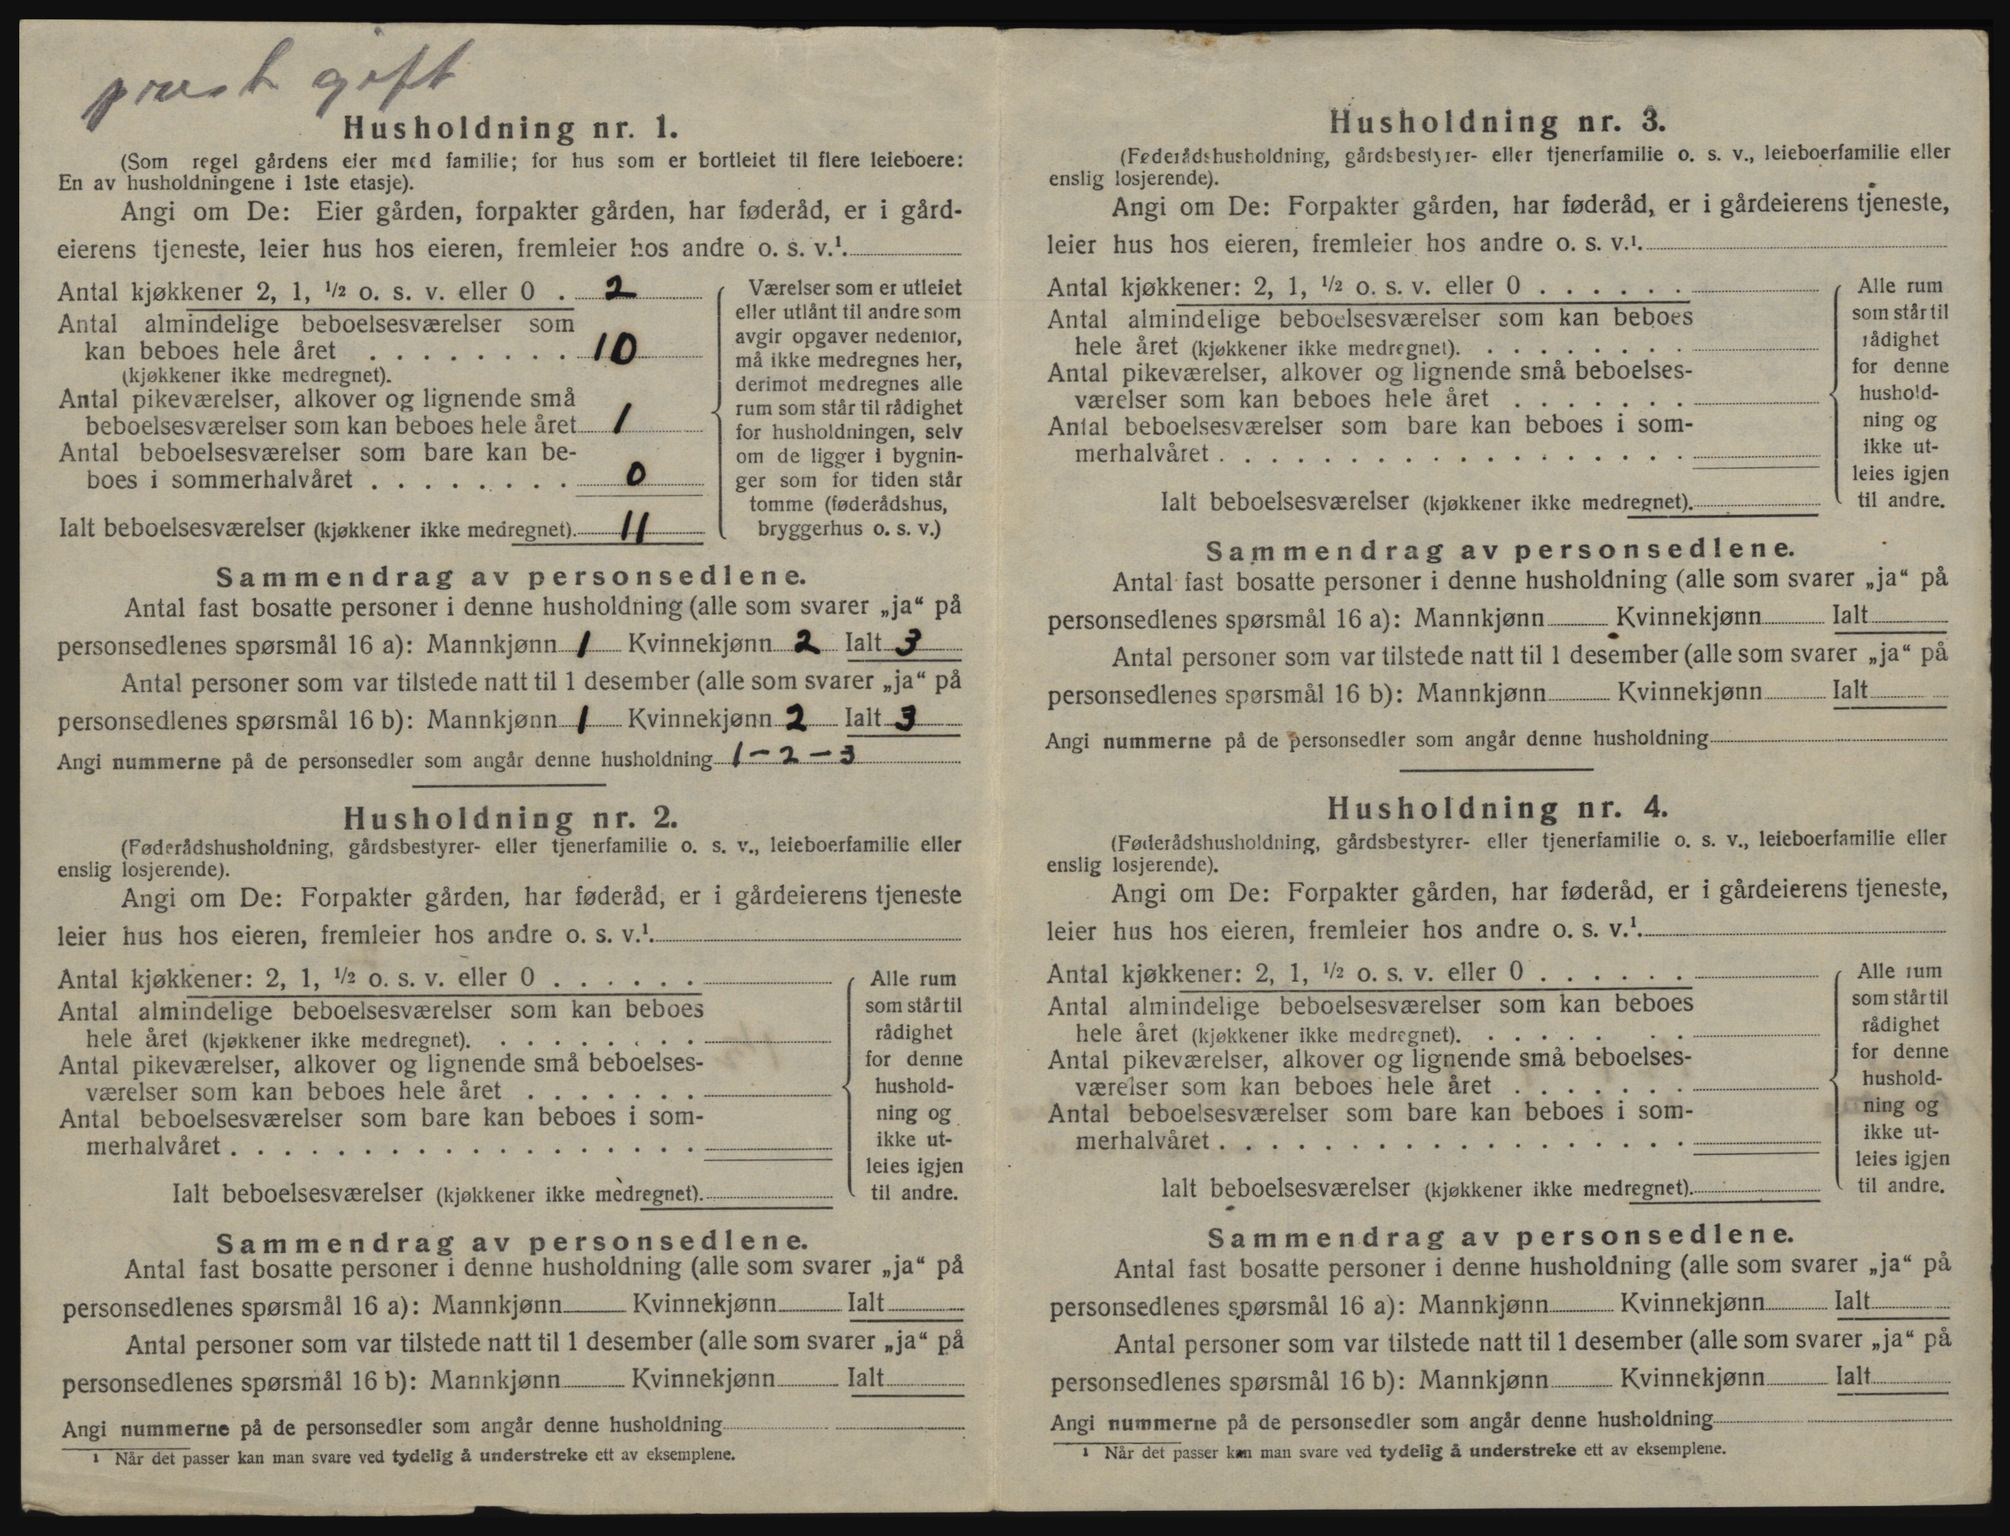 prest gift
Husholdning nr. 1.
(Som regel gårdens eier med familie; for hus som er bortleiet til flere leieboere:
En av husholdningene i 1ste etasje).
Angi om De: Eier gården, forpakter gården, har føderåd, er i gård-
eierens tjeneste, leier hus hos eieren, fremleier hos andre o. s. v.¹.
Antal kjøkkener 2, 1, ½ o. s. v. eller 0 . 2
Antal almindelige beboelsesværelser som
kan beboes hele året . . . . . . . . 10
(kjøkkener ikke medregnet).
Antal pikeværelser, alkover og lignende små
beboelsesværelser som kan beboes hele året 1
Antal beboelsesværelser som bare kan be-
boes i sommerhalvåret . . . . . . . . 0
Ialt beboelsesværelser (kjøkkener ikke medregnet). 11
Værelser som er utleiet
eller utlånt til andre som
avgir opgaver nedenfor,
må ikke medregnes her,
derimot medregnes alle
rum som står til rådighet
for husholdningen, selv
om de ligger i bygnin-
ger som for tiden står
tomme (føderådshus,
bryggerhus o. s. v.)
Sammendrag av personsedlene.
Antal fast bosatte personer i denne husholdning (alle som svarer „ja“ på
personsedlenes spørsmål 16 a): Mannkjønn 1 Kvinnekjønn 2 Ialt 3
Antal personer som var tilstede natt til 1 desember (alle som svarer „ja“ på
personsedlenes spørsmål 16 b): Mannkjønn 1 Kvinnekjønn 2 Ialt 3
Angi nummerne på de personsedler som angår denne husholdning 1 - 2 - 3
Husholdning nr. 2.
(Føderådshusholdning, gårdsbestyrer- eller tjenerfamilie o. s. v., leieboerfamilie eller
enslig losjerende).
Angi om De: Forpakter gården, har føderåd, er i gårdeierens tjeneste
leier hus hos eieren, fremleier hos andre o. s. v.¹.
Antal kjøkkener: 2, 1, ½ o. s. v. eller 0 . . . . . .
Antal almindelige beboelsesværelser som kan beboes
hele året (kjøkkener ikke medregnet). . . . . . . . .
Antal pikeværelser, alkover og lignende små beboelses-
værelser som kan beboes hele året . . . . . . .
Antal beboelsesværelser som bare kan beboes i som-
merhalvåret . . . . . . . . . . . . . . . . . .
Ialt beboelsesværelser (kjøkkener ikke medregnet).
Alle rum
som står til
rådighet
for denne
hushold-
ning og
ikke ut-
leies igjen
til andre.
Sammendrag av personsedlene.
Antal fast bosatte personer i denne husholdning (alle som svarer „ja“ på
personsedlenes spørsmål 16 a): Mannkjønn Kvinnekjønn Ialt
Antal personer som var tilstede natt til 1 desember (alle som svarer „ja“ på
personsedlenes spørsmål 16 b): Mannkjønn Kvinnekjønn Ialt
Angi nummerne på de personsedler som angår denne husholdning
¹ Når det passer kan man svare ved tydelig å understreke ett av eksemplene.
Husholdning nr. 3.
(Føderådshusholdning, gårdsbestyrer- eller tjenerfamilie o. s. v., leieboerfamilie eller
enslig losjerende).
Angi om De: Forpakter gården, har føderåd, er i gårdeierens tjeneste,
leier hus hos eieren, fremleier hos andre o. s. v.¹.
Antal kjøkkener: 2, 1, ½ o. s. v. eller 0 . . . . . .
Antal almindelige beboelsesværelser som kan beboes
hele året (kjøkkener ikke medregnet). . . . . . . . .
Antal pikeværelser, alkover og lignende små beboelses-
værelser som kan beboes hele året . . . . . . .
Antal beboelsesværelser som bare kan beboes i som-
merhalvåret . . . . . . . . . . . . . . . . . .
Ialt beboelsesværelser (kjøkkener ikke medregnet).
Alle rum
som står til
rådighet
for denne
hushold-
ning og
ikke ut-
leies igjen
til andre.
Sammendrag av personsedlene.
Antal fast bosatte personer i denne husholdning (alle som svarer „ja“ på
personsedlenes spørsmål 16 a): Mannkjønn Kvinnekjønn Ialt
Antal personer som var tilstede natt til 1 desember (alle som svarer „ja“ på
personsedlenes spørsmål 16 b): Mannkjønn Kvinnekjønn Ialt
Angi nummerne på de personsedler som angår denne husholdning
Husholdning nr. 4.
(Føderådshusholdning, gårdsbestyrer- eller tjenerfamilie o. s. v., leieboerfamilie eller
enslig losjerende).
Angi om De: Forpakter gården, har føderåd, er i gårdeierens tjeneste,
leier hus hos eieren, fremleier hos andre o. s. v.¹.
Antal kjøkkener: 2, 1, ½ o. s. v. eller 0 . . . . . .
Antal almindelige beboelsesværelser som kan beboes
hele året (kjøkkener ikke medregnet). . . . . . . . .
Antal pikeværelser, alkover og lignende små beboelses-
værelser som kan beboes hele året . . . . . . .
Antal beboelsesværelser som bare kan beboes i som-
merhalvåret . . . . . . . . . . . . . . . . . .
Ialt beboelsesværelser (kjøkkener ikke medregnet).
Alle rum
som står til
rådighet
for denne
hushold-
ning og
ikke ut-
leies igjen
til andre.
Sammendrag av personsedlene.
Antal fast bosatte personer i denne husholdning (alle som svarer „ja“ på
personsedlenes spørsmål 16 a): Mannkjønn Kvinnekjønn Ialt
Antal personer som var tilstede natt til 1 desember (alle som svarer „ja“ på
personsedlenes spørsmål 16 b): Mannkjønn Kvinnekjønn Ialt
Angi nummerne på de personsedler som angår denne husholdning
¹ Når det passer kan man svare ved tydelig å understreke ett av eksemplene.